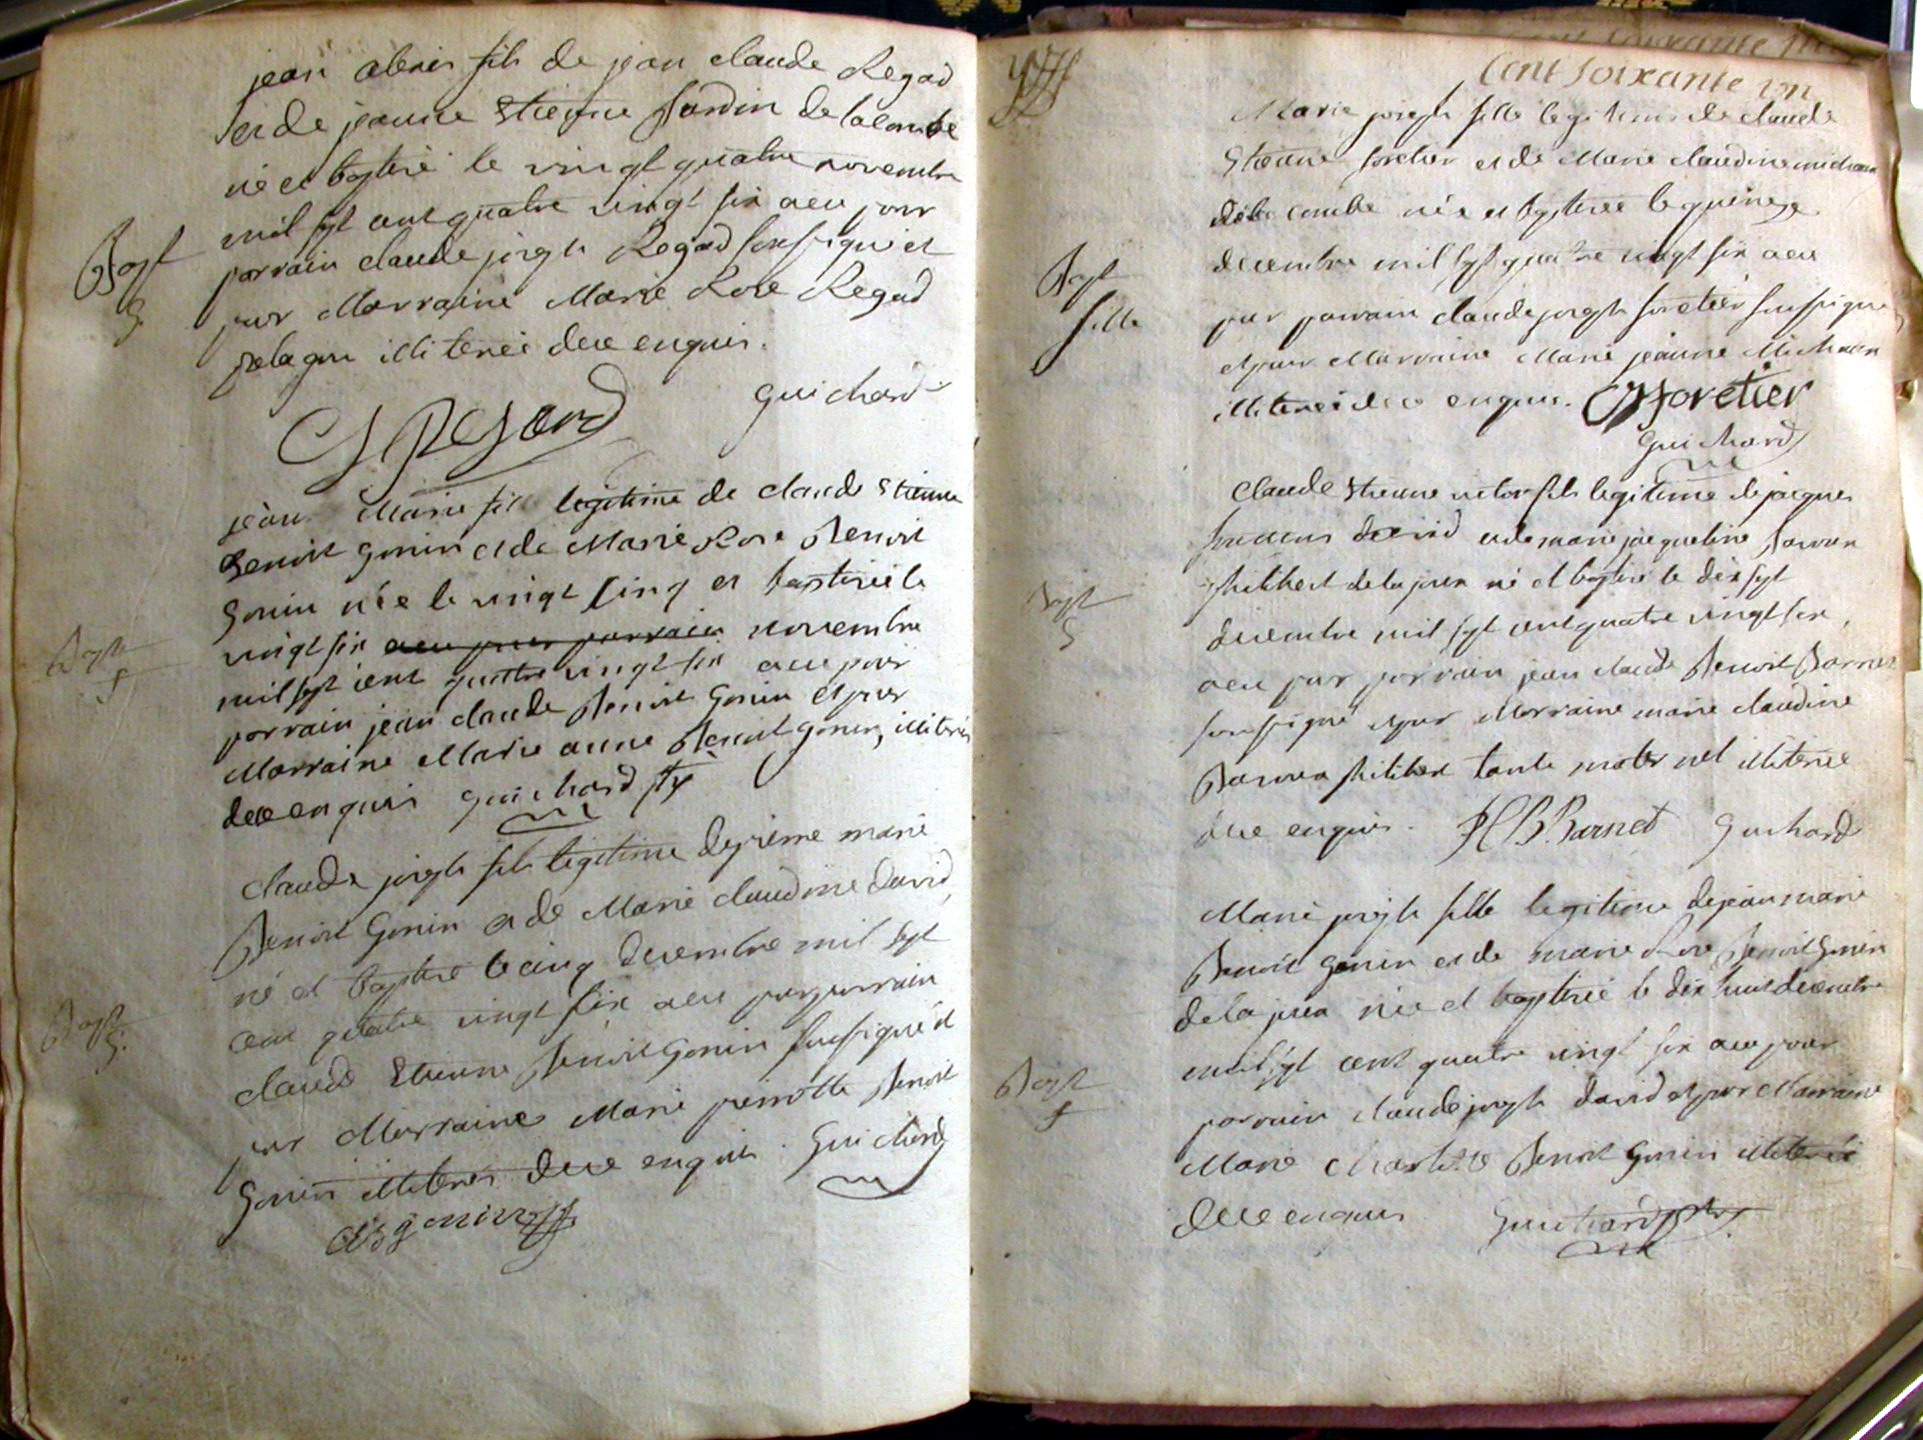 jean alexis fils de jean claude Regad
et de jeanne Etienne Jardin de lacombe
né et baptisé le vingt quatre novembre
mil sept cent quatre vingt six aeu pour
parrain claude joseph Regad soussigné et
Bapt
g
pour Marraine Marie Rose Regad
illiterée dece enquis.
guichard
CJ Regard
jean Marie fils legitime de claude Etienne
Benoit Gonin et de Marie Rose Benoit
Gonin née le vingt cinq et baptisée le
vingt six aeu pour parrain novembre
Bapt
f
mil sept cent quattre vingt six aeu pour
parrain jean claude Benoit Gonin et pour
Marraine Marie anne Benoit Gonin, illiterés
dece enquis guichard
claude joseph fils legitime de pierre marie
Benoit Gonin et de Marie claudine david
né et baptisé le cinq decembre mil sept
cent quatre vingt six aeu pour parrain
Bapt
g.
claude Etienne Benoit Gonin soussigné et
pour Marraine Marie pierrotte Benoit
Gonin illiterés dece enquis. Guichard
CEB gonin
Cent soixante un
Marie joseph fille legitime de claude
Etienne foretier et de Marie claudine michaux
de la combe née et baptisée le quinze
decembre mil sept quatre vingt six aeu
Bapt
fille
pour parrain claude joseph foretier soussigné
et pour Marraine Marie jeanne Michaux
illiterée dece enquis. CJ foretier
Guichard
claude Etienne victor fils legitime de jacques
francois david et de marie jacqueline
de la joux né et baptisé le dix sept
Bapt
g
decembre mil sept cent quatre vingt six,
aeu pour parrain jean claude Benoit Barnet
soussigné et pour Marraine marie claudine
tante maternel illiterée
dece enquis. JCB. Barnet Guichard
Marie joseph fille legitime de jean marie
Benoit Gonin et de marie Rose Benoit Gonin
de la joux née et baptisée le dix huit decembre
mil sept cent quatre vingt six aeu pour
Bapt
f
parrain claude joseph david et pour Marraine
Marie Benoit Gonin illiterés
dece enquis Guichard